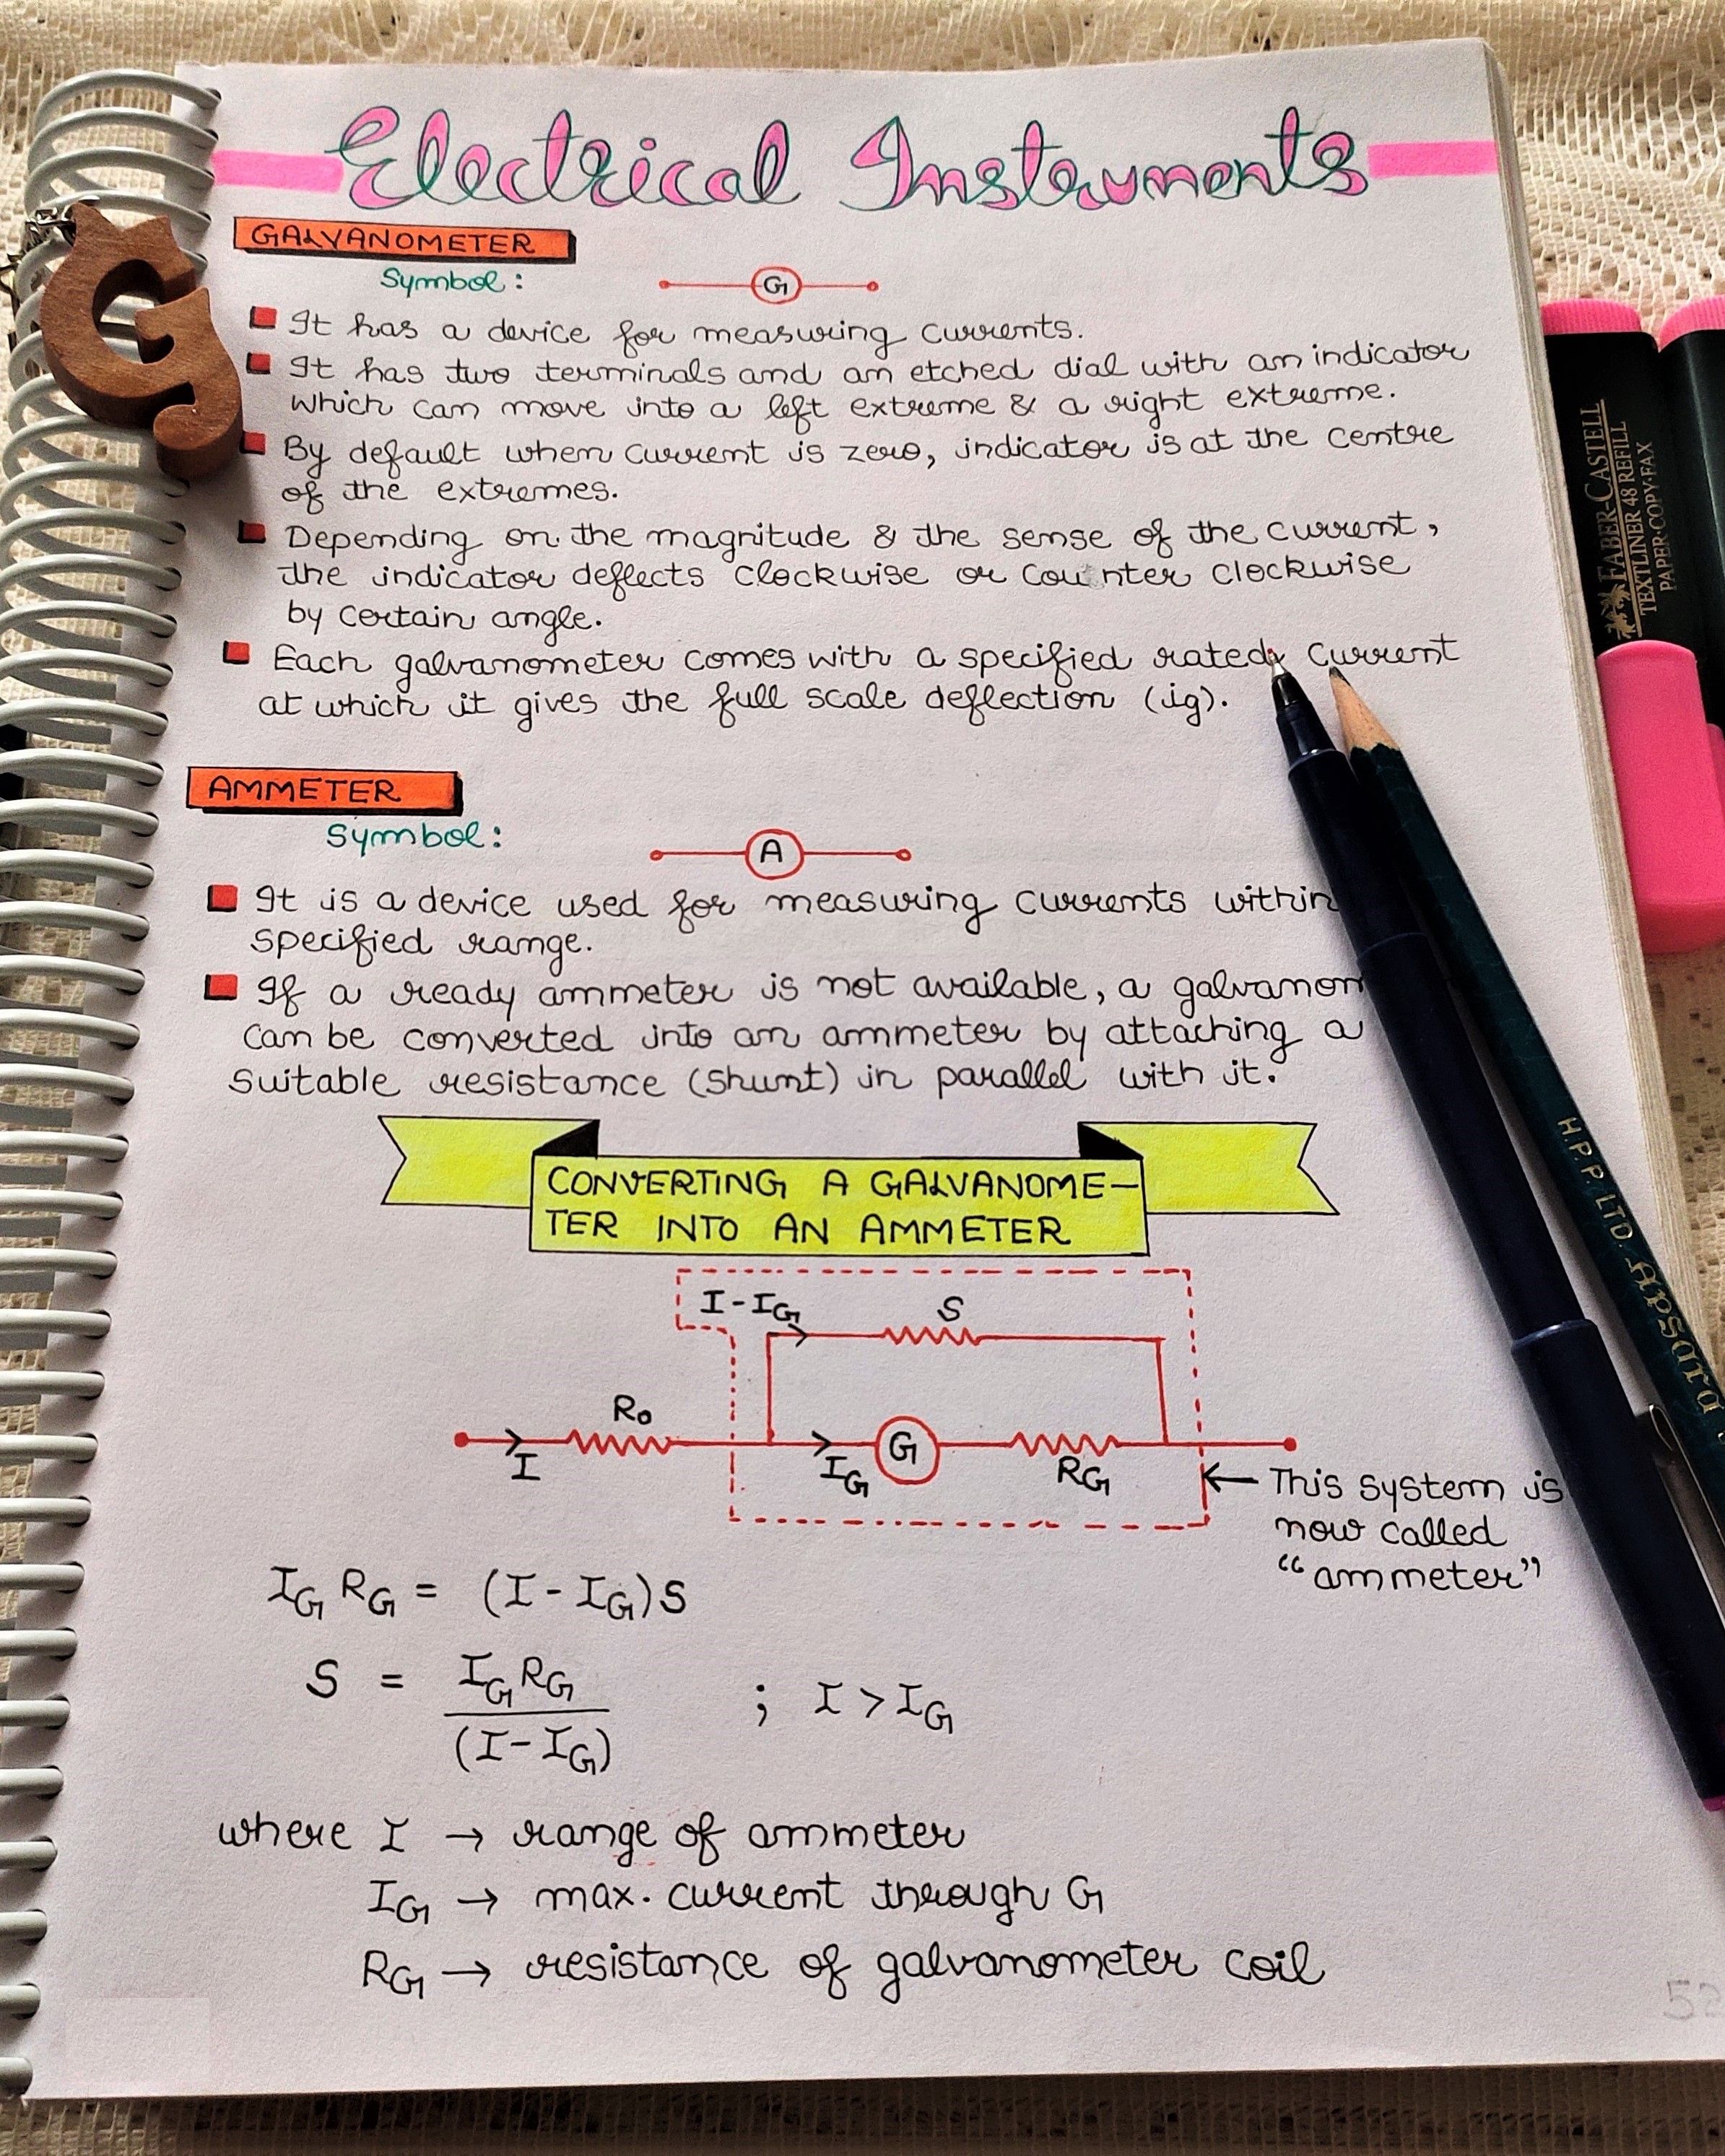 Electrical Instruments
GALVANOMETER
Symbol:
G
It has a device for measuring currents.
It has two terminals and an etched dial with an indicator
which can move into a left extreme & a right extreme.
By default when current is zero, indicator is at the centre
of the extremes.
Depending on the magnitude & the sense of the current,
the indicator deflects clockwise or counter clockwise
by certain angle.
Each galvanometer comes with a specified rated current
at which it gives the full scale deflection (ig).
AMMETER
Symbol:
A
It is a device used for measuring currents within
specified range.
If a ready ammeter is not available, a galvanom
can be converted into an ammeter by attaching a
suitable resistance (shunt) in parallel with it.
CONVERTING A GALVANOME-
TER INTO AN AMMETER
I-IG S
Ro
I IG G RG
This system is
now called
"ammeter"
IG RG = (I-IG)S
S = IG RG / (I-IG) ; I > IG
where I → range of ammeter
IG → max. current through G
RG → resistance of galvanometer coil
G
FABER-CASTELL
TEXTLINER 48 REFILL
PAPER·COPY·FAX
H.P.P. LTD. Apsara